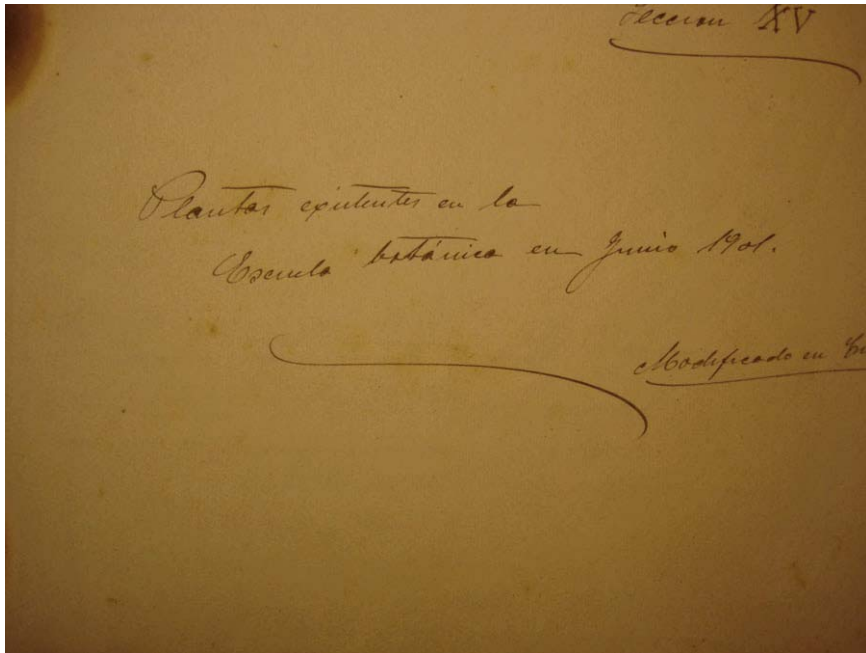 Sección XV
Plantas existentes en la
Escuela botánica en Junio 1901.
Modificado en